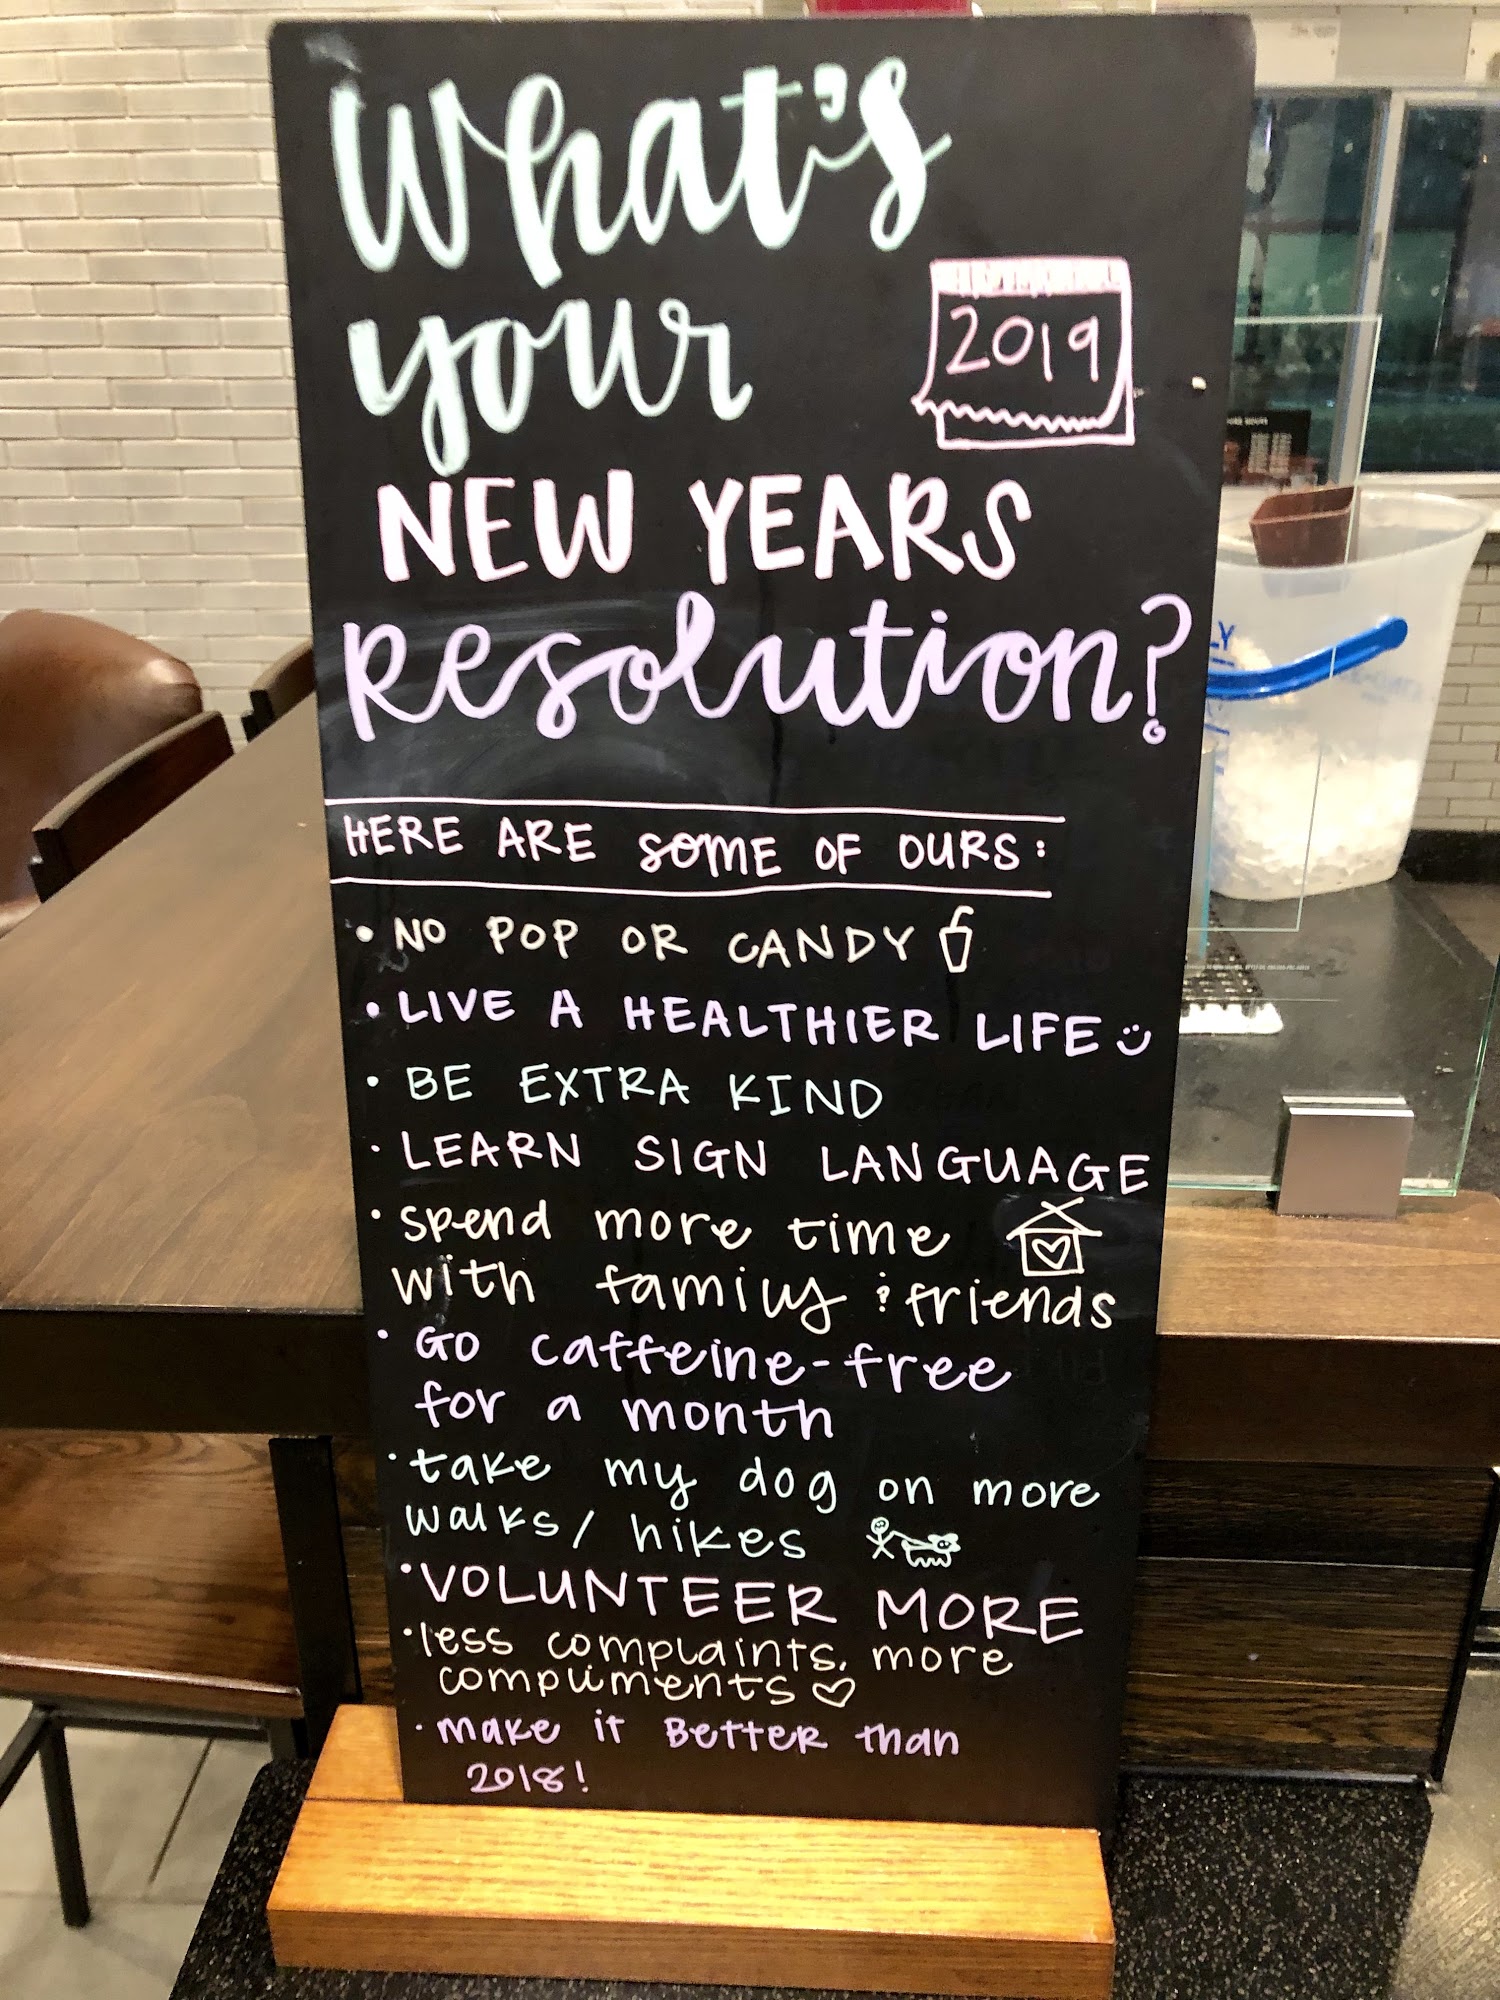 What's
your
2019
NEW YEARS
Resolution?
HERE ARE SOME OF OURS:
• NO POP OR CANDY
• LIVE A HEALTHIER LIFE
• BE EXTRA KIND
• LEARN SIGN LANGUAGE
• spend more time
with family & friends
• GO caffeine-free
for a month
• take my dog on more
walks/hikes
• VOLUNTEER MORE
• less complaints, more
compliments ♡
• make it Better than
2018!